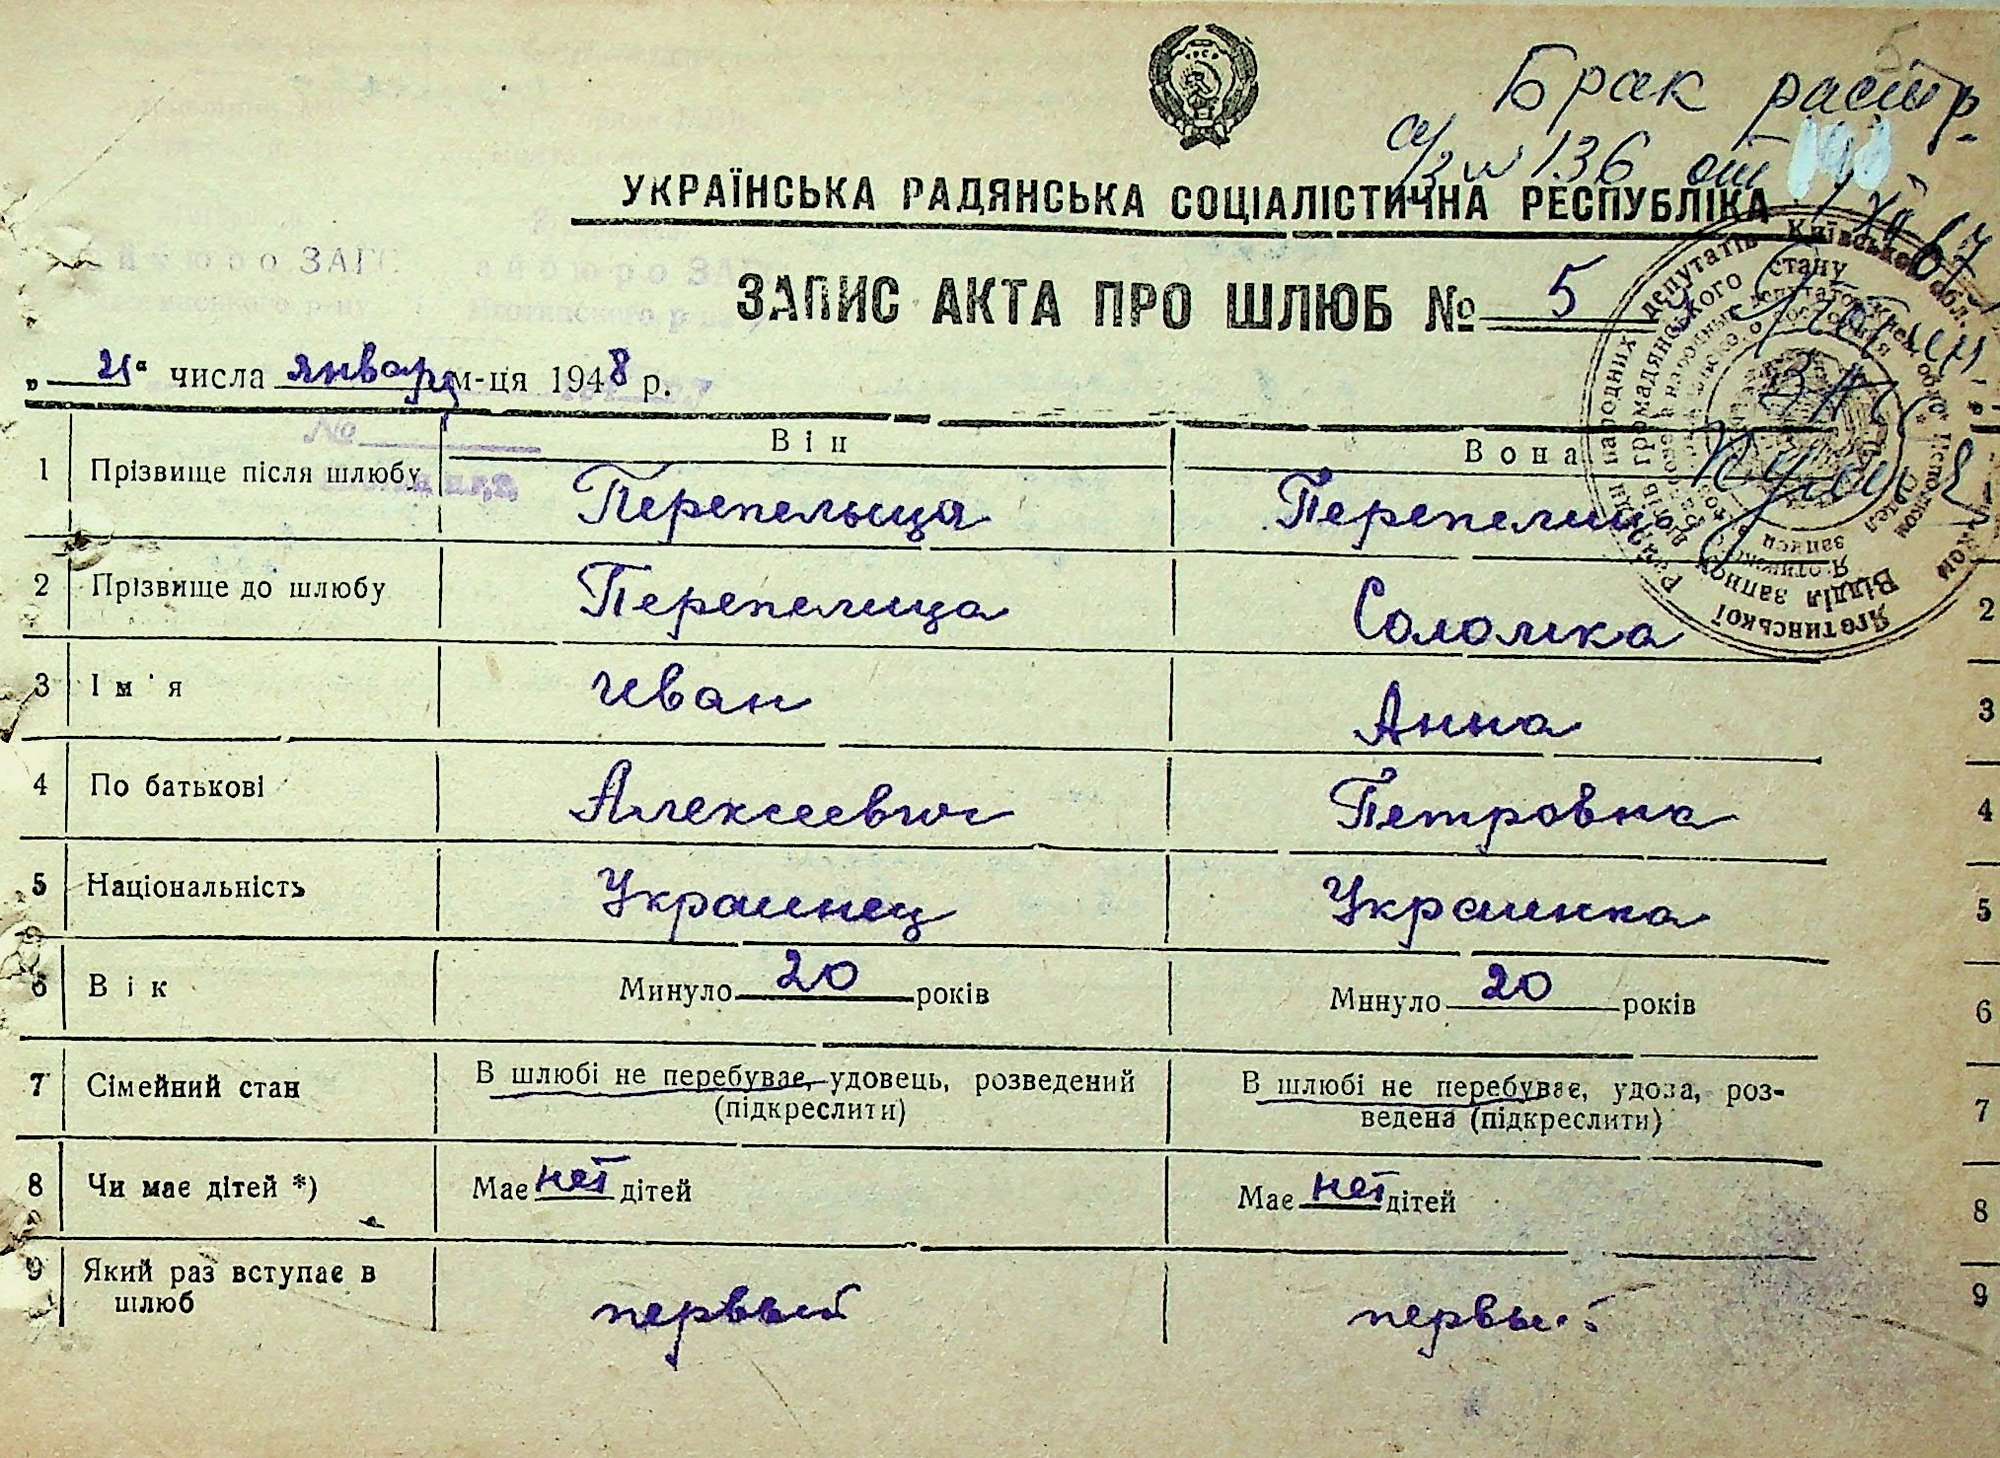 5
Брак раст.
а/з № 136 от
УКРАЇНСЬКА РАДЯНСЬКА СОЦІАЛІСТИЧНА РЕСПУБЛІКА
ЗАПИС АКТА ПРО ШЛЮБ № 5
„ 21 “ числа января м-ця 1948 р.
Він Вона
1 Прізвище після шлюбу Перепелыця Перепелица
2 Прізвище до шлюбу Перепелица Соломка 2
3 Ім'я Иван Анна 3
4 По батькові Алексеевич Петровна 4
5 Національність Украинец Украинка 5
6 Вік Минуло 20 років Минуло 20 років 6
7 Сімейний стан В шлюбі не перебуває, удовець, розведений (підкреслити) В шлюбі не перебуває, удова, роз-
ведена (підкреслити) 7
8 Чи має дітей *) Має нет дітей Має нет дітей 8
9 Який раз вступає в шлюб первый первый 9
народних депутатів Київської обл.
Відділ запису
громадянського стану
Яготинської